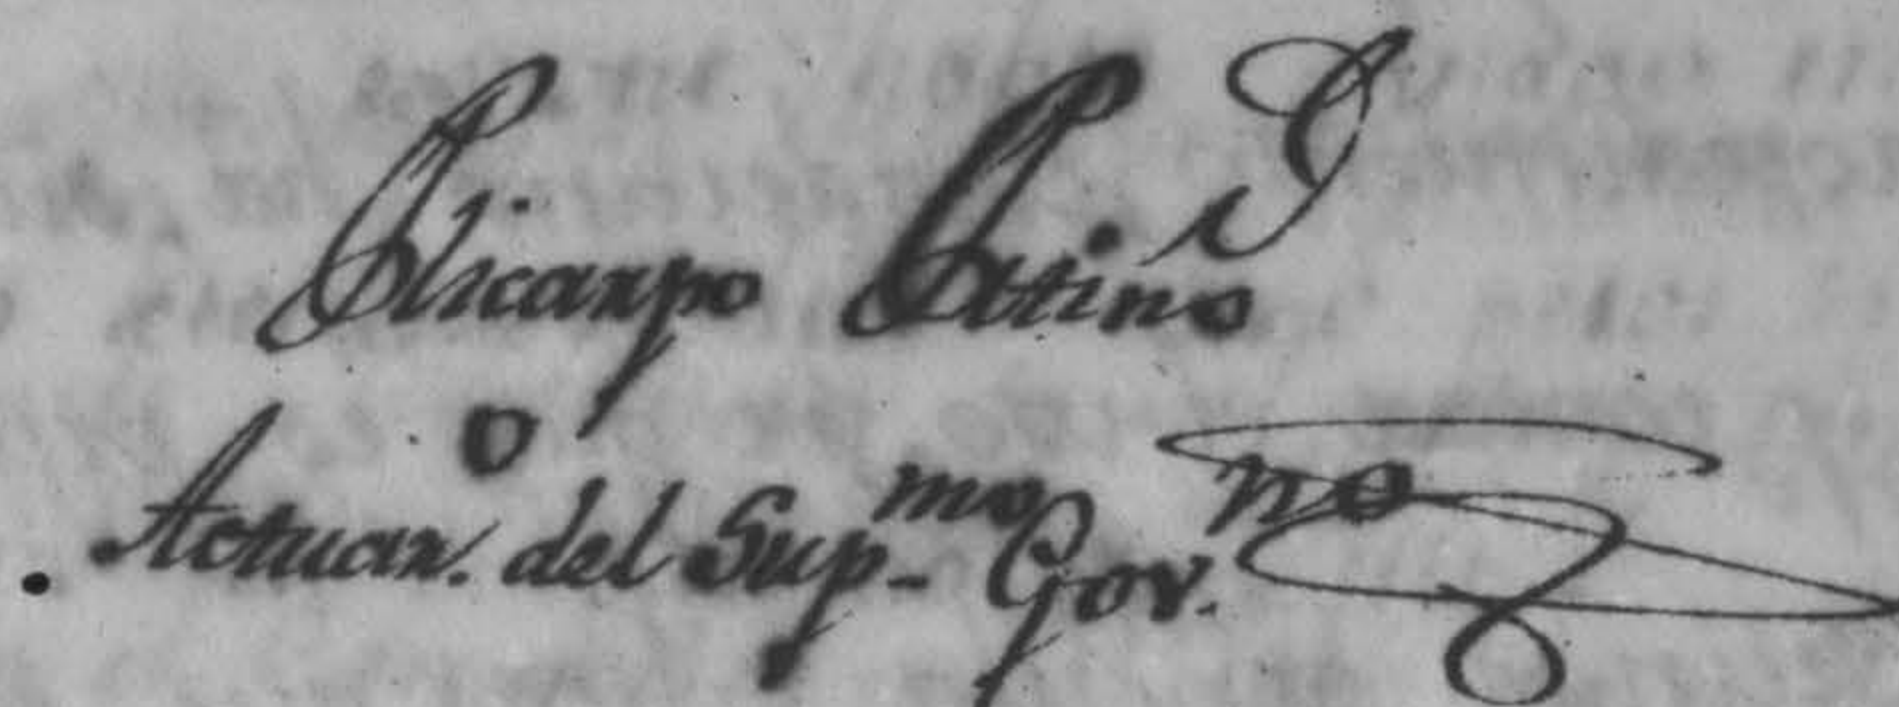 Policarpo Patiño
Actuar.º del Sup.mo Gov.no